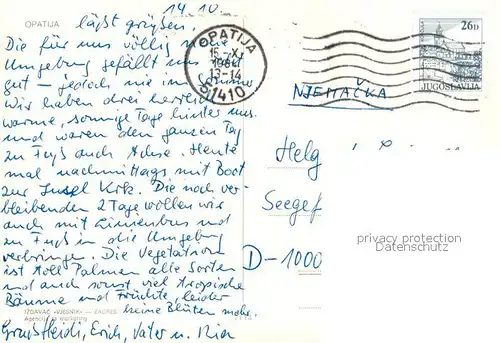 14.10.
OPATIJA
läßt grüßen.
Die für uns völlig neue
Umgebung gefällt uns sehr
gut – jedoch nie im Sommer
Wir haben drei herrlich
warme, sonnige Tage hinter uns
und waren den ganzen Tag
zu Fuß auch Adria. Heute
mal nachmittags mit Boot
zur Insel Krk. Die noch ver-
bleibenden 2 Tage wollen wir
auch mit Linienbus und
zu Fuß in die Umgebung
verbringen. Die Vegetation
ist toll Palmen alle Sorten
und auch sonst viel tropische
Bäume und Früchte, leider
keine Blüten mehr.
IZDAVAČ »VJESNIK« — ZAGREB
Agencija za Marketing
Gruß Heidi, Erich, Vater u.
OPATIJA
15.-X.
13-14
51410
26D
JUGOSLAVIJA
NJEMAČKA
Helg
Seegef
D-1000
privacy protection
Datenschutz